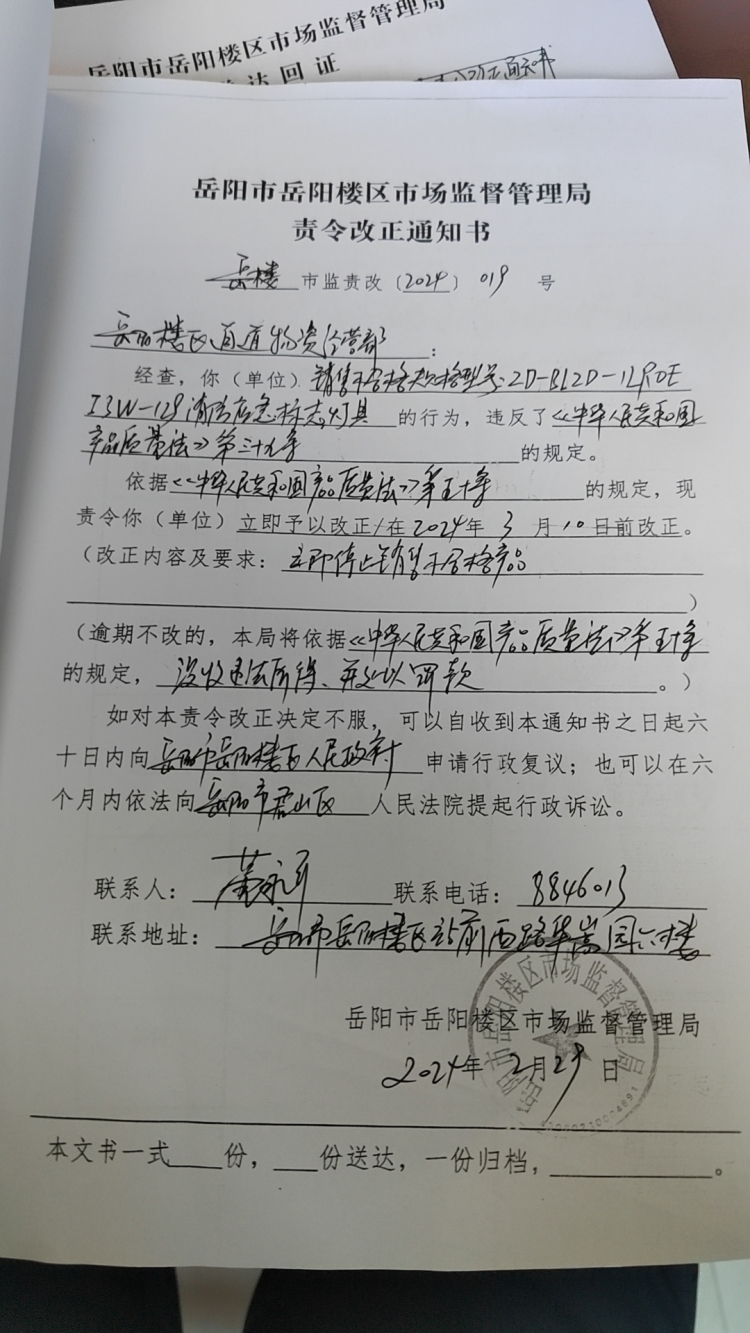 岳阳市岳阳楼区市场监督管理局
达回证
岳阳市岳阳楼区市场监督管理局
责令改正通知书
岳楼 市监责改〔2024〕019 号
岳阳楼区 道物资经营部：
经查，你（单位）销售不合格规格型号:ZD-BLZD-1LROE
I3W-129消防应急标志灯具 的行为，违反了《中华人民共和国
产品质量法》第三十九条 的规定。
依据《中华人民共和国产品质量法》第五十条 的规定，现
责令你（单位）立即予以改正/在2024年 3 月10日前改正。
（改正内容及要求：立即停止销售不合格产品
）
（逾期不改的，本局将依据《中华人民共和国产品质量法》第五十条
的规定，没收违法所得、并处以罚款。）
如对本责令改正决定不服，可以自收到本通知书之日起六
十日内向岳阳市岳阳楼区人民政府 申请行政复议；也可以在六
个月内依法向岳阳市君山区 人民法院提起行政诉讼。
联系人： 联系电话：8846013
联系地址：岳阳市岳阳楼区站前西路 园六楼
岳阳市岳阳楼区市场监督管理局
2024年 2月29日
岳阳市岳阳楼区市场监督管理局
本文书一式___份，___份送达，一份归档，________。